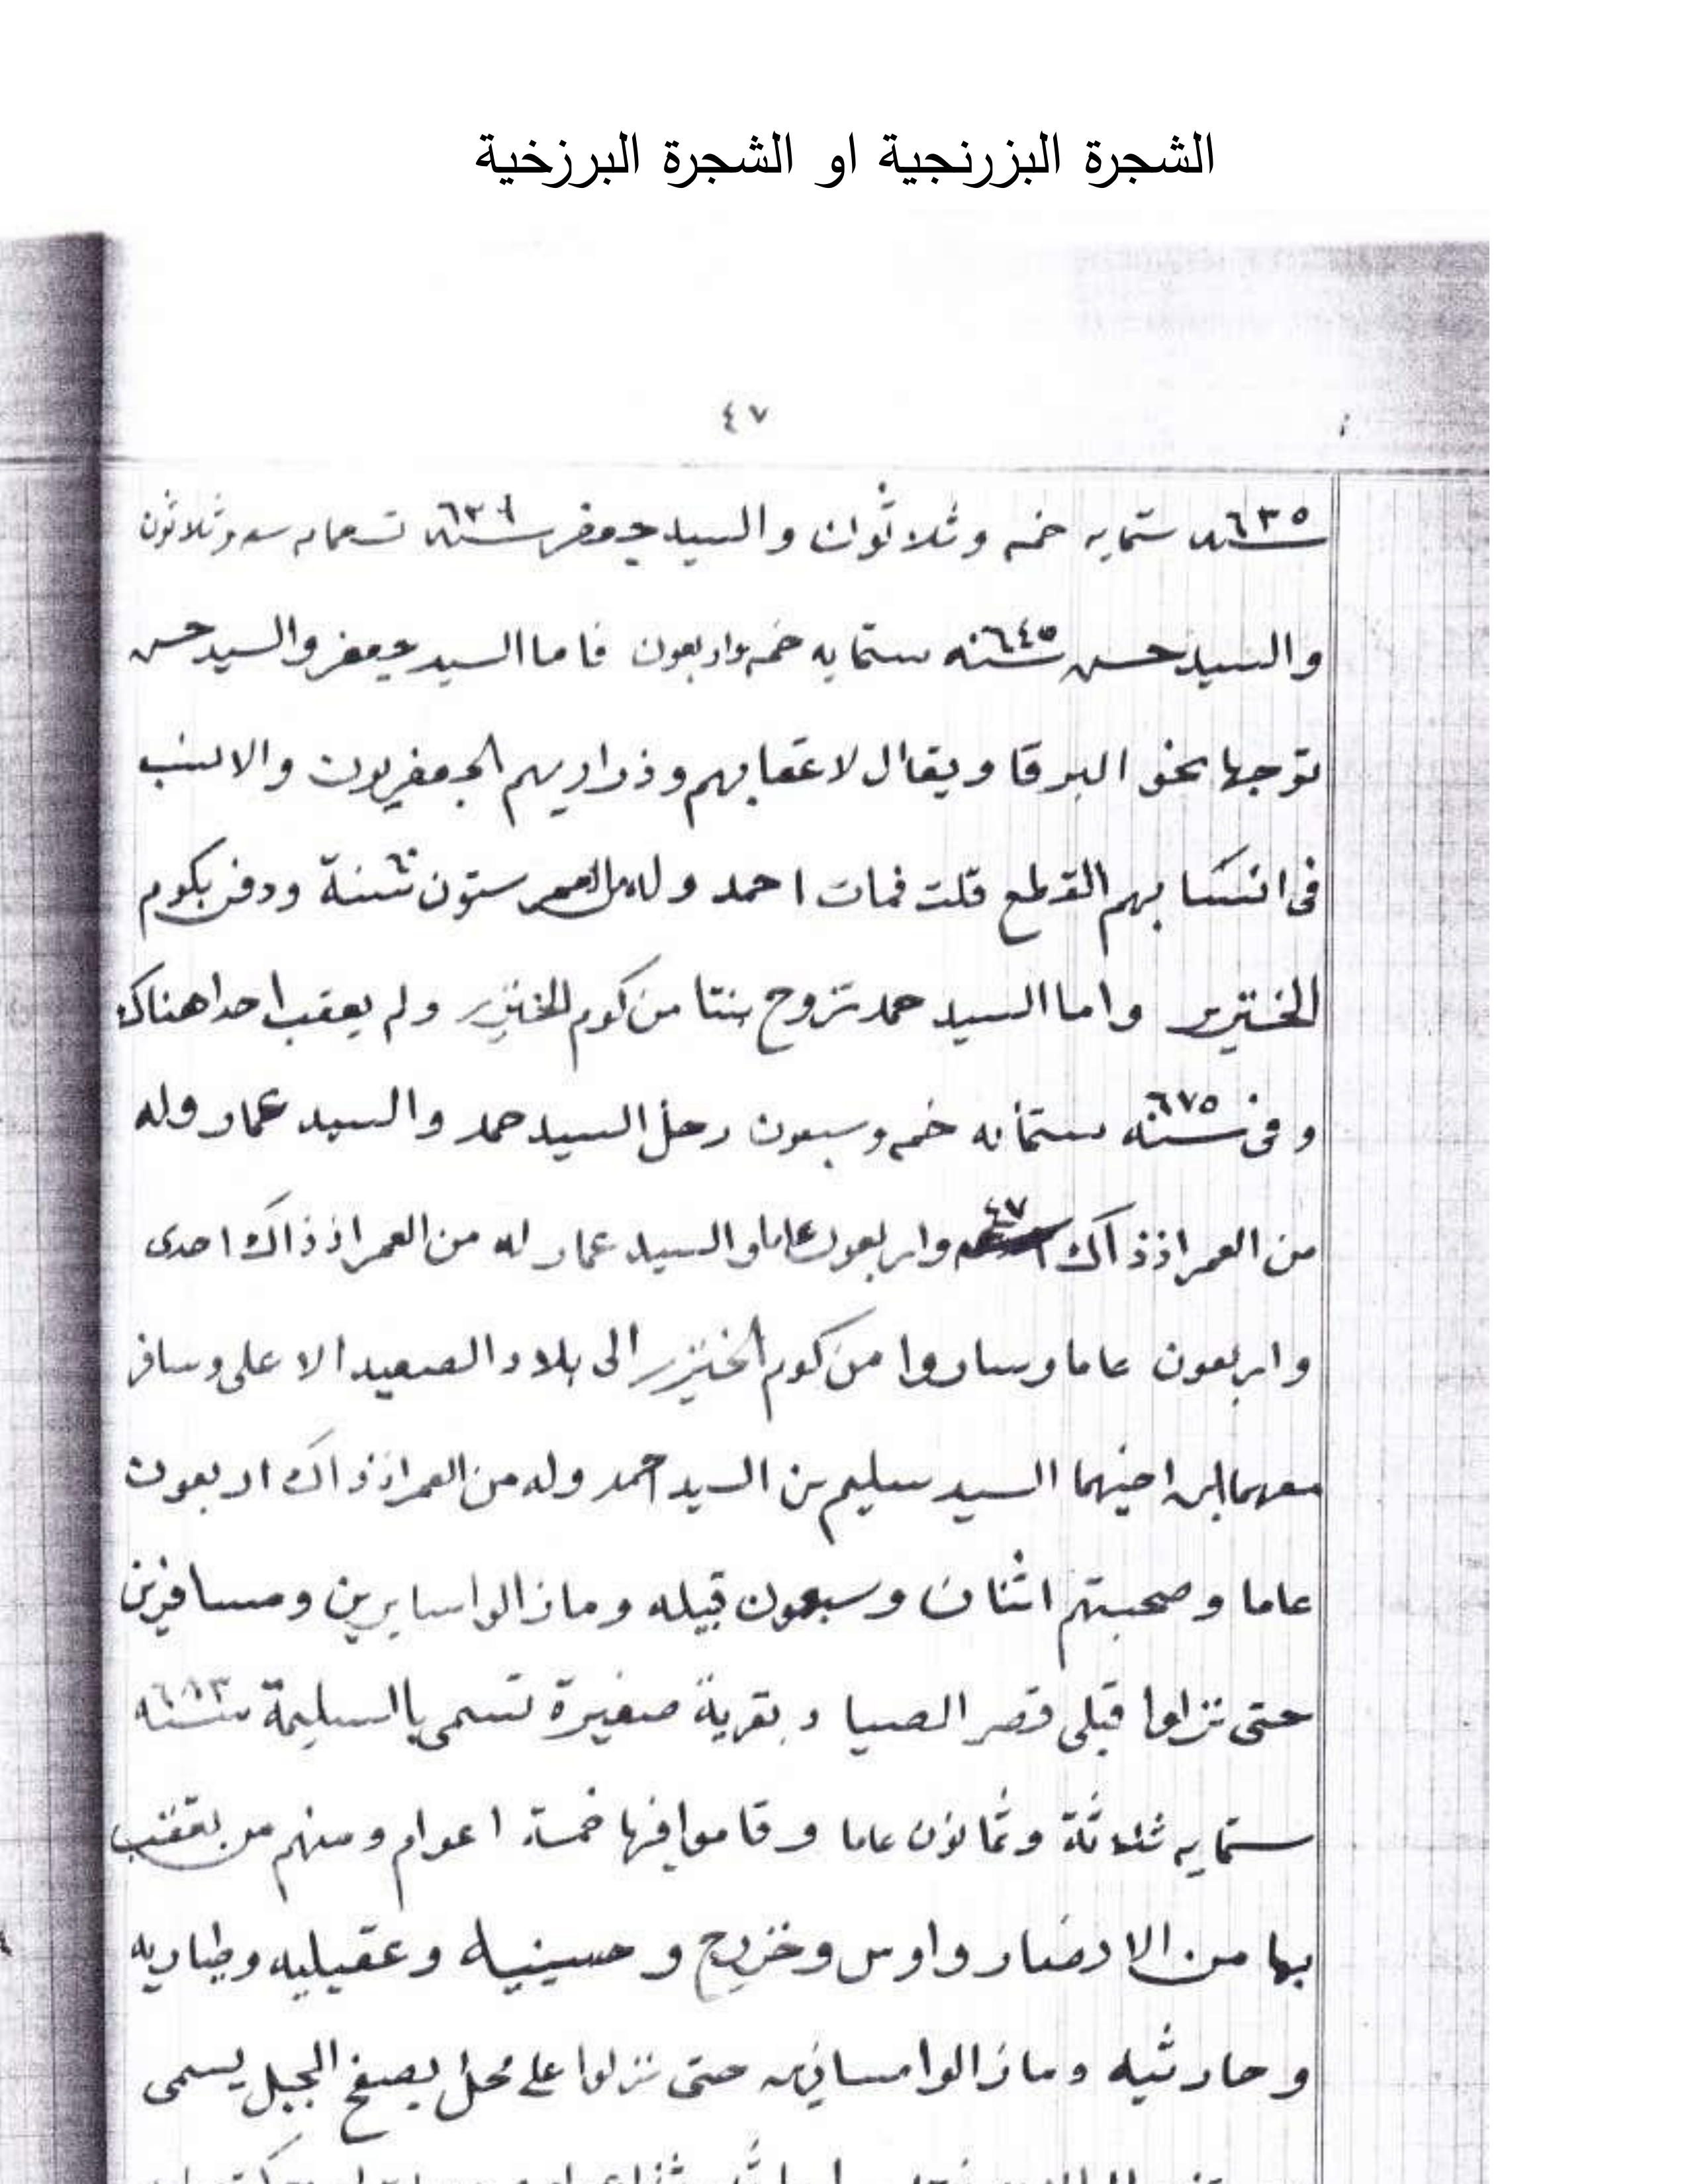 الشجرة البزرنجية او الشجرة البرزخية
٤٧
سنه ٦٣٥ ستمايه خمسه وثلاثون والسيد جعفر سنه
والسيد حسن سنه ٦٤٥ ستمايه خمسه واربعون فاما السيد جعفر والسيد حسن
توجها نحو البرقا ويقال لاعقابهم وذراريهم الجعفريون والانسب
فى انتسابهم القطع قلت فمات احمد وله من العمر ستون سنة ٦٠ ودفن بكوم
الخنزير واما السيد حمد تزوج بنتا من كوم الخنزير ولم يعقب احدا هناك
وفى سنه ٦٧٥ ستمايه خمسه وسبعون رحل السيد حمد والسيد عمار وله
من العمر اذ ذاك ٤٧ واربعون عاما والسيد عمار له من العمر اذ ذاك احدى
واربعون عاما وساروا من كوم الخنزير الى بلاد الصعيد الاعلى وسافر
معهما ابن اخيهما السيد سليم بن السيد احمد وله من العمر اذ ذاك اربعون
عاما وصحبتهم اثنان وسبعون قبيله ومازالوا سايرين ومسافرين
حتى نزلوا قبلى قصر الصياد بقرية صغيرة تسمى بالسليمة سنه ٦٨٣
ستمايه ثلاثة وثمانون عاما وقاموا فيها خمسة اعوام ومنهم من يعقب
بها من الانصار واوس وخزرج وحسينيه وعقيليه وطياريه
وحارثيه ومازالوا مسافرين حتى نزلوا على محل بصفح الجبل يسمى